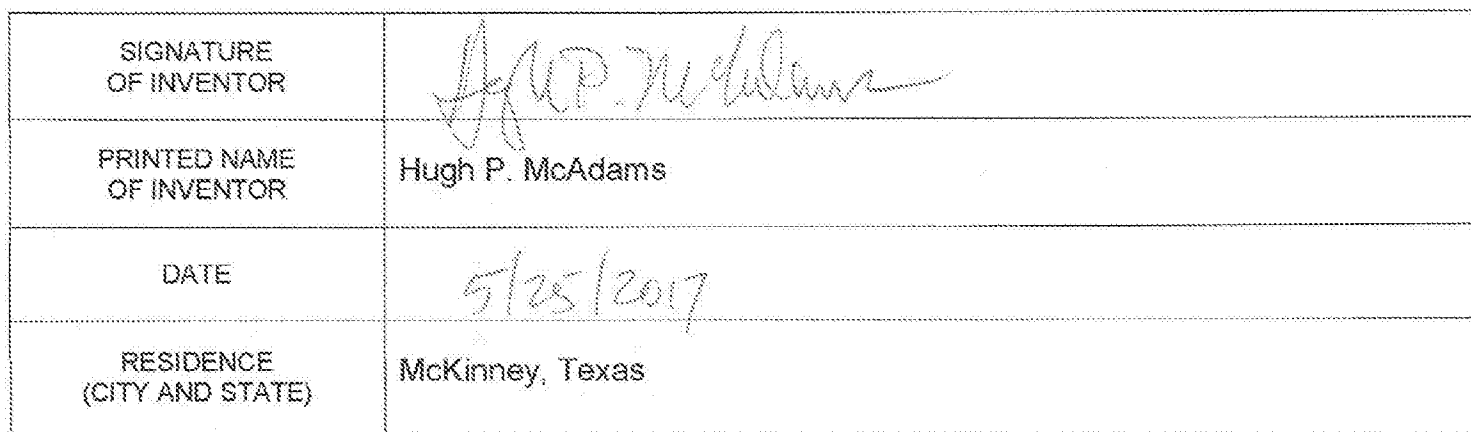 SIGNATURE
OF INVENTOR
Hugh P. McAdams
PRINTED NAME
OF INVENTOR
Hugh P. McAdams
DATE
5/25/2017
RESIDENCE
(CITY AND STATE)
McKinney, Texas